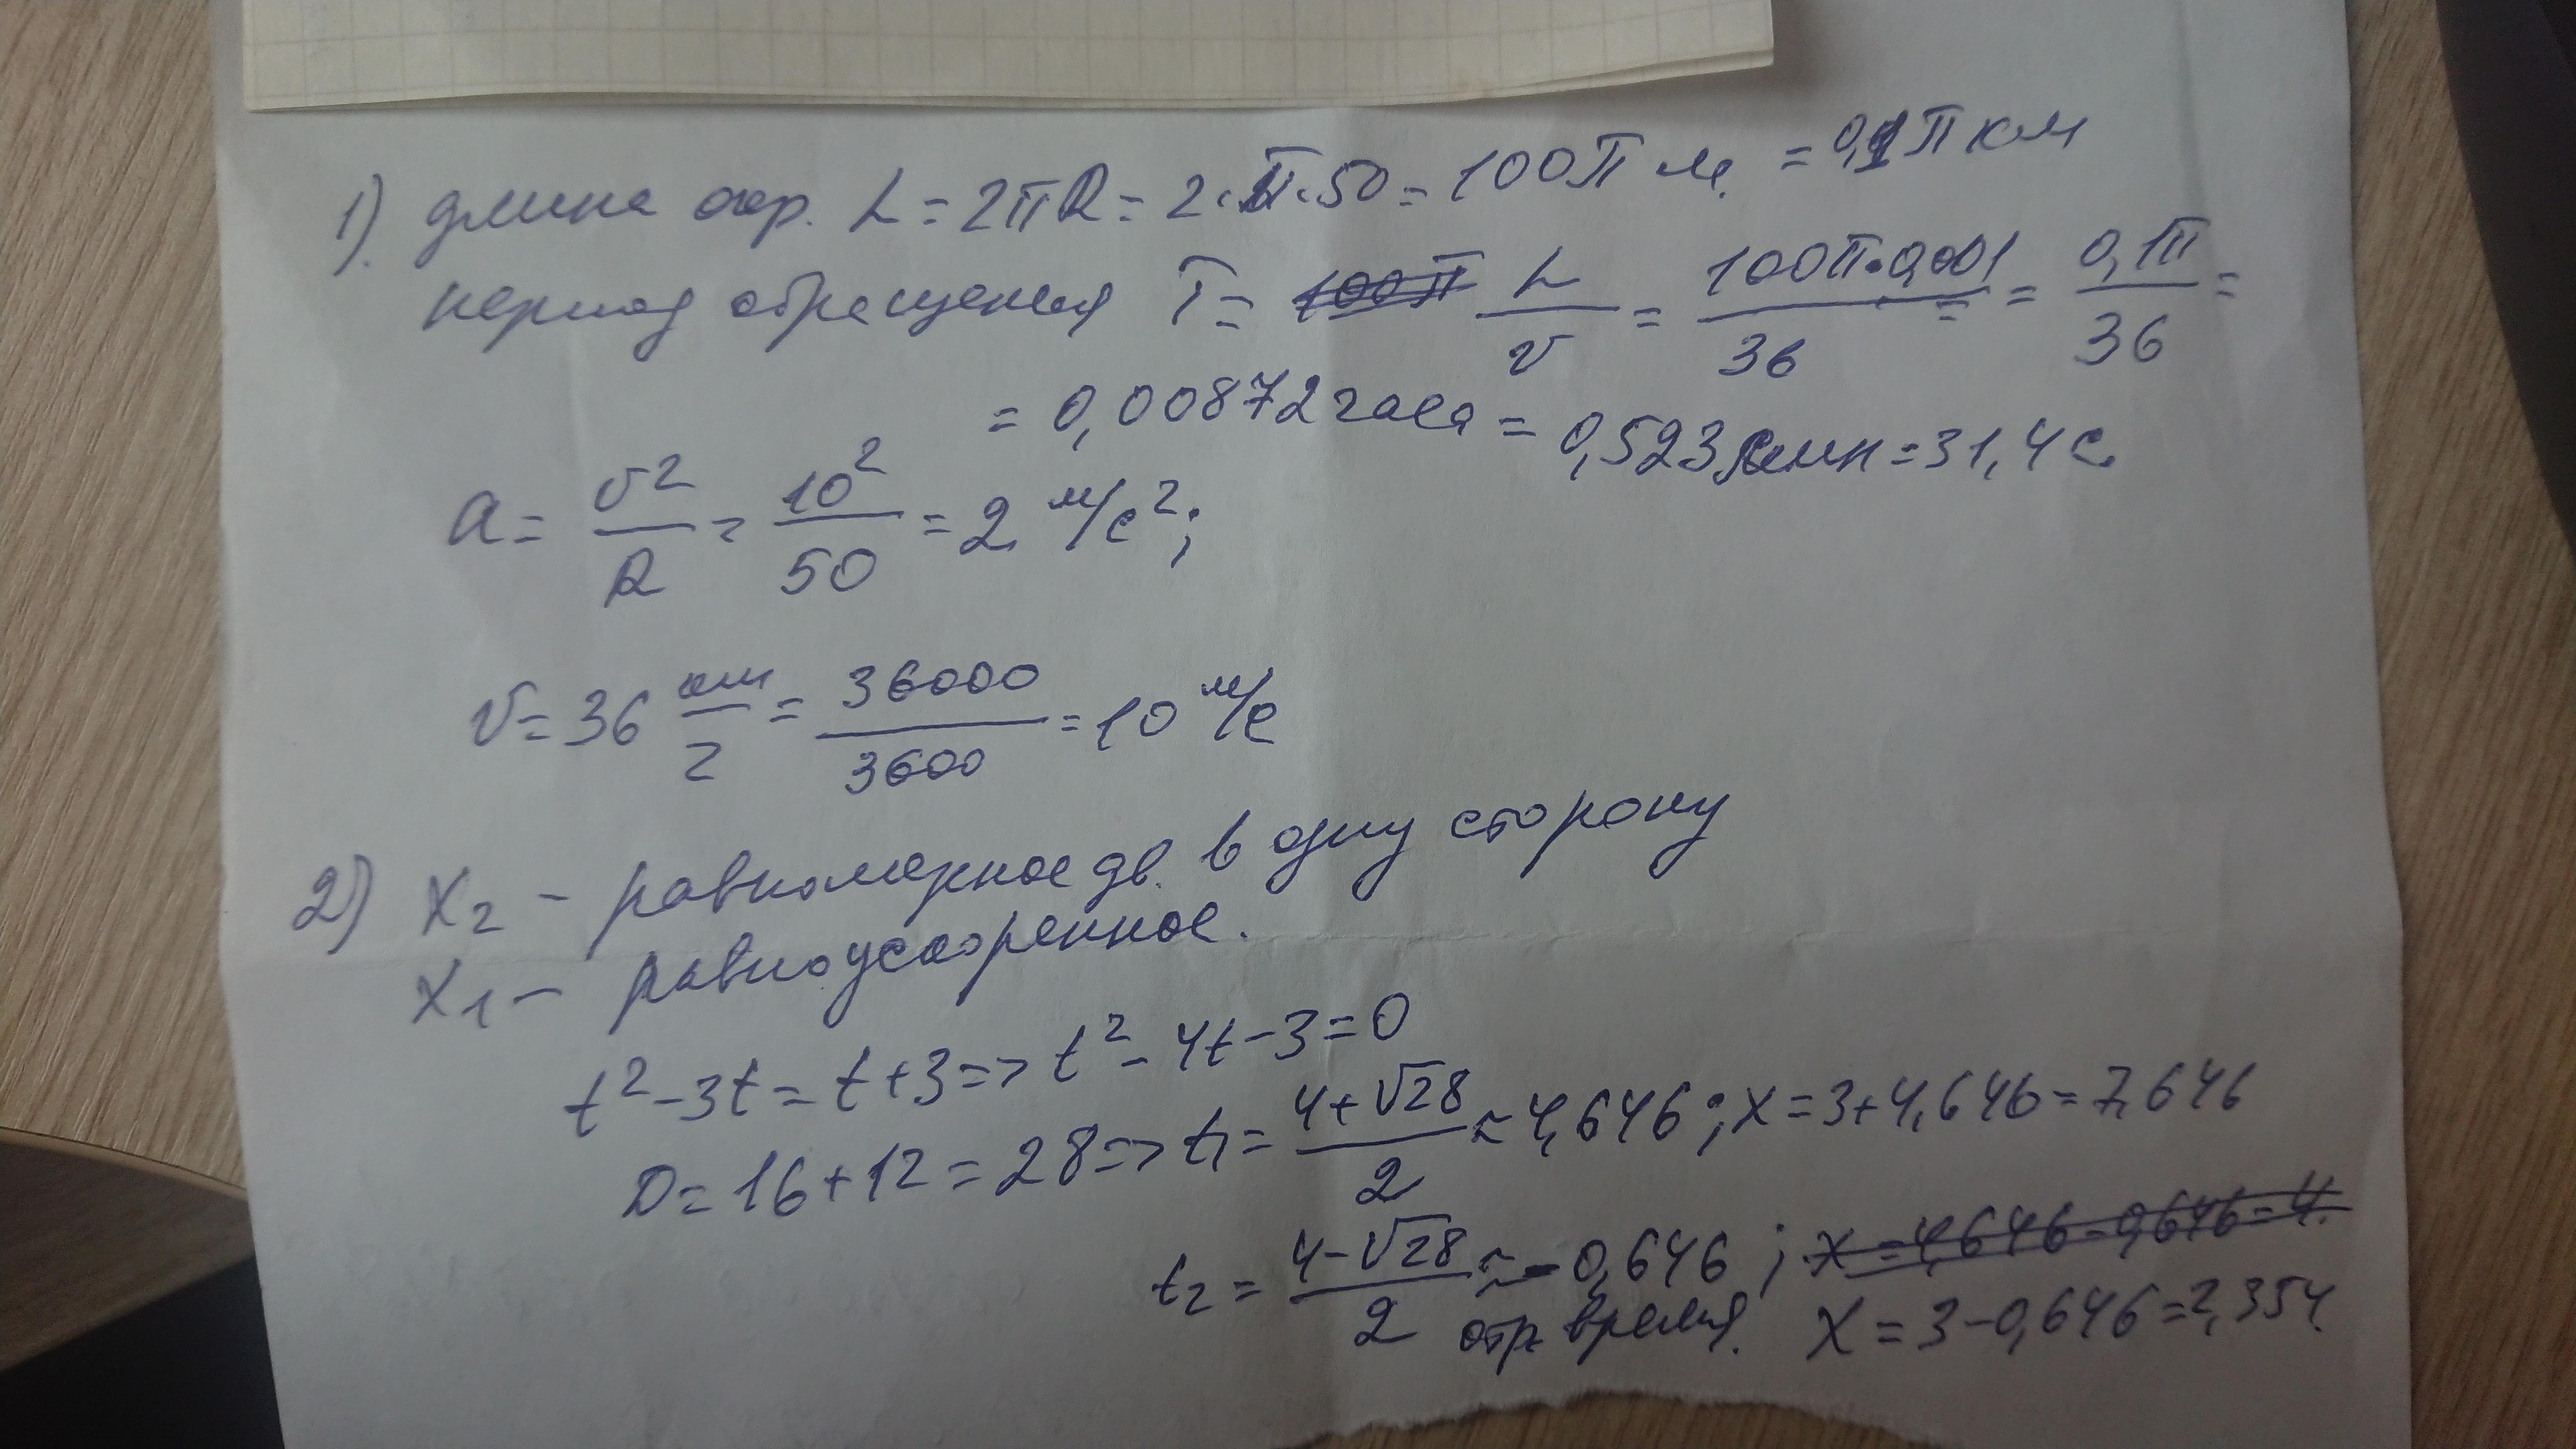 1). длина окр. L = 2πR = 2·π·50 = 100π м. = 0,1π км
период обращения T = 100π L/v = 100π·0,001/36 = 0,1π/36 =
= 0,00872 часа = 0,523 мин = 31,4 с.
a = v²/R = 10²/50 = 2 м/с²;
v = 36 км/г = 36000/3600 = 10 м/с
2) x₂ – равномерное дв. в одну сторону
x₁ – равноускоренное.
t² - 3t = t + 3 => t² - 4t - 3 = 0
D = 16 + 12 = 28 => t₁ = 4+√28/2 ≈ 4,646; x = 3 + 4,646 = 7,646
t₂ = 4-√28/2 ≈ -0,646; x = 4,646 - 0,646 = 4.
отр. время. x = 3 - 0,646 = 2,354.